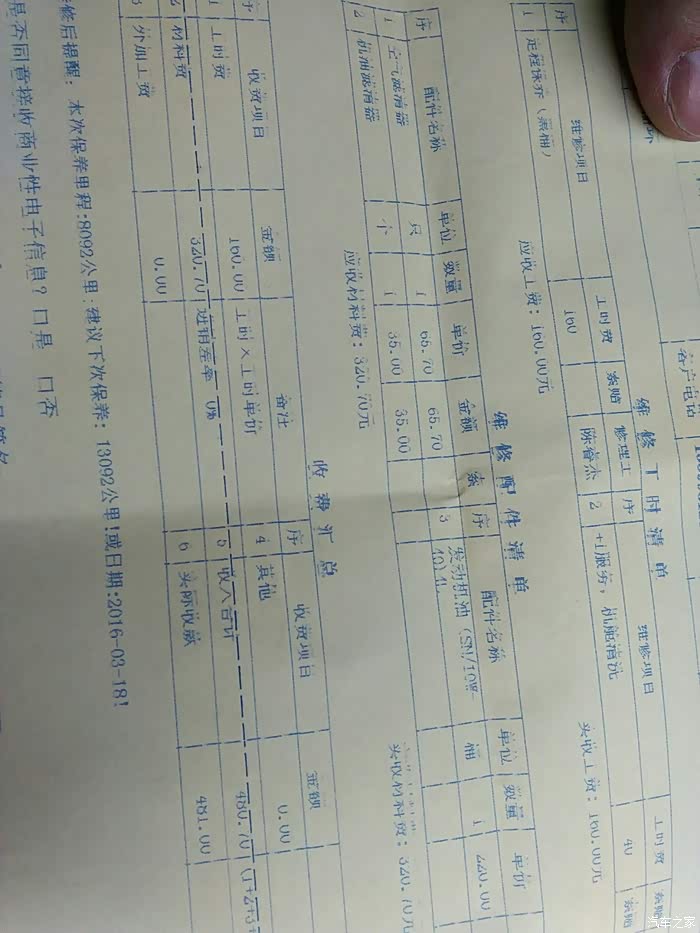 客户电话
维修工时清单
序 维修项目 工时费 索赔 修理工 序 维修项目 工时费 索赔
1 定程保养（索桶） 160 陈睿杰 2 +1服务，机舱清洗 40
应收工费：160.00元 实收工费：160.00元
维修配件清单
序 配件名称 单位 数量 单价 金额 索 序 配件名称 单位 数量 单价
1 空气滤清器 只 1 65.70 65.70 3 发动机油（SN/10W-
40)4L 桶 1 220.00
2 机油滤清器 个 1 35.00 35.00
应收材料费：320.70元 实收材料费：320.70元
收费汇总
序 收费项目 金额 备注 序 收费项目 金额
1 工时费 160.00 工时×工时单价 4 其他 0.00
2 材料费 320.70 进销差率 0% 5 收入合计 480.70 (1+2+3+
3 外加工费 0.00 6 实际收款 481.00
修后提醒：本次保养里程:8092公里;建议下次保养：13092公里!或日期:2016-03-18!
是否同意接收商业性电子信息？口是 口否
汽车之家